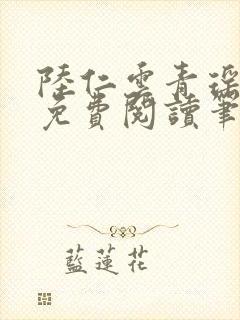 陸仁雲青瑶
免費閱讀筆
藍蓮花